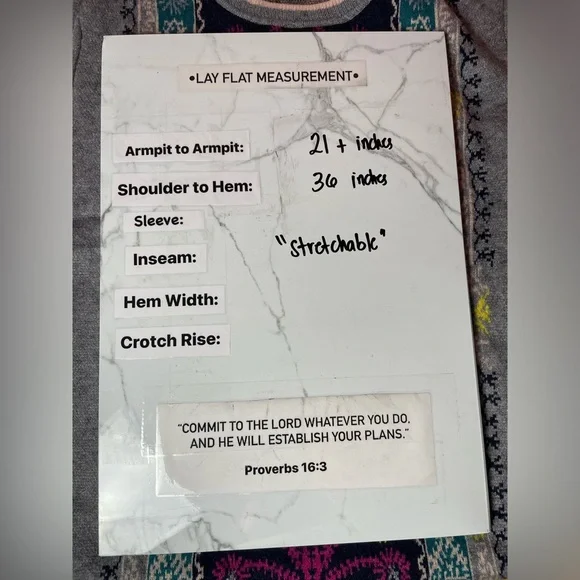 •LAY FLAT MEASUREMENT•
Armpit to Armpit: 21 + inches
Shoulder to Hem: 36 inches
Sleeve:
"Stretchable"
Inseam:
Hem Width:
Crotch Rise:
“COMMIT TO THE LORD WHATEVER YOU DO,
AND HE WILL ESTABLISH YOUR PLANS.”
Proverbs 16:3